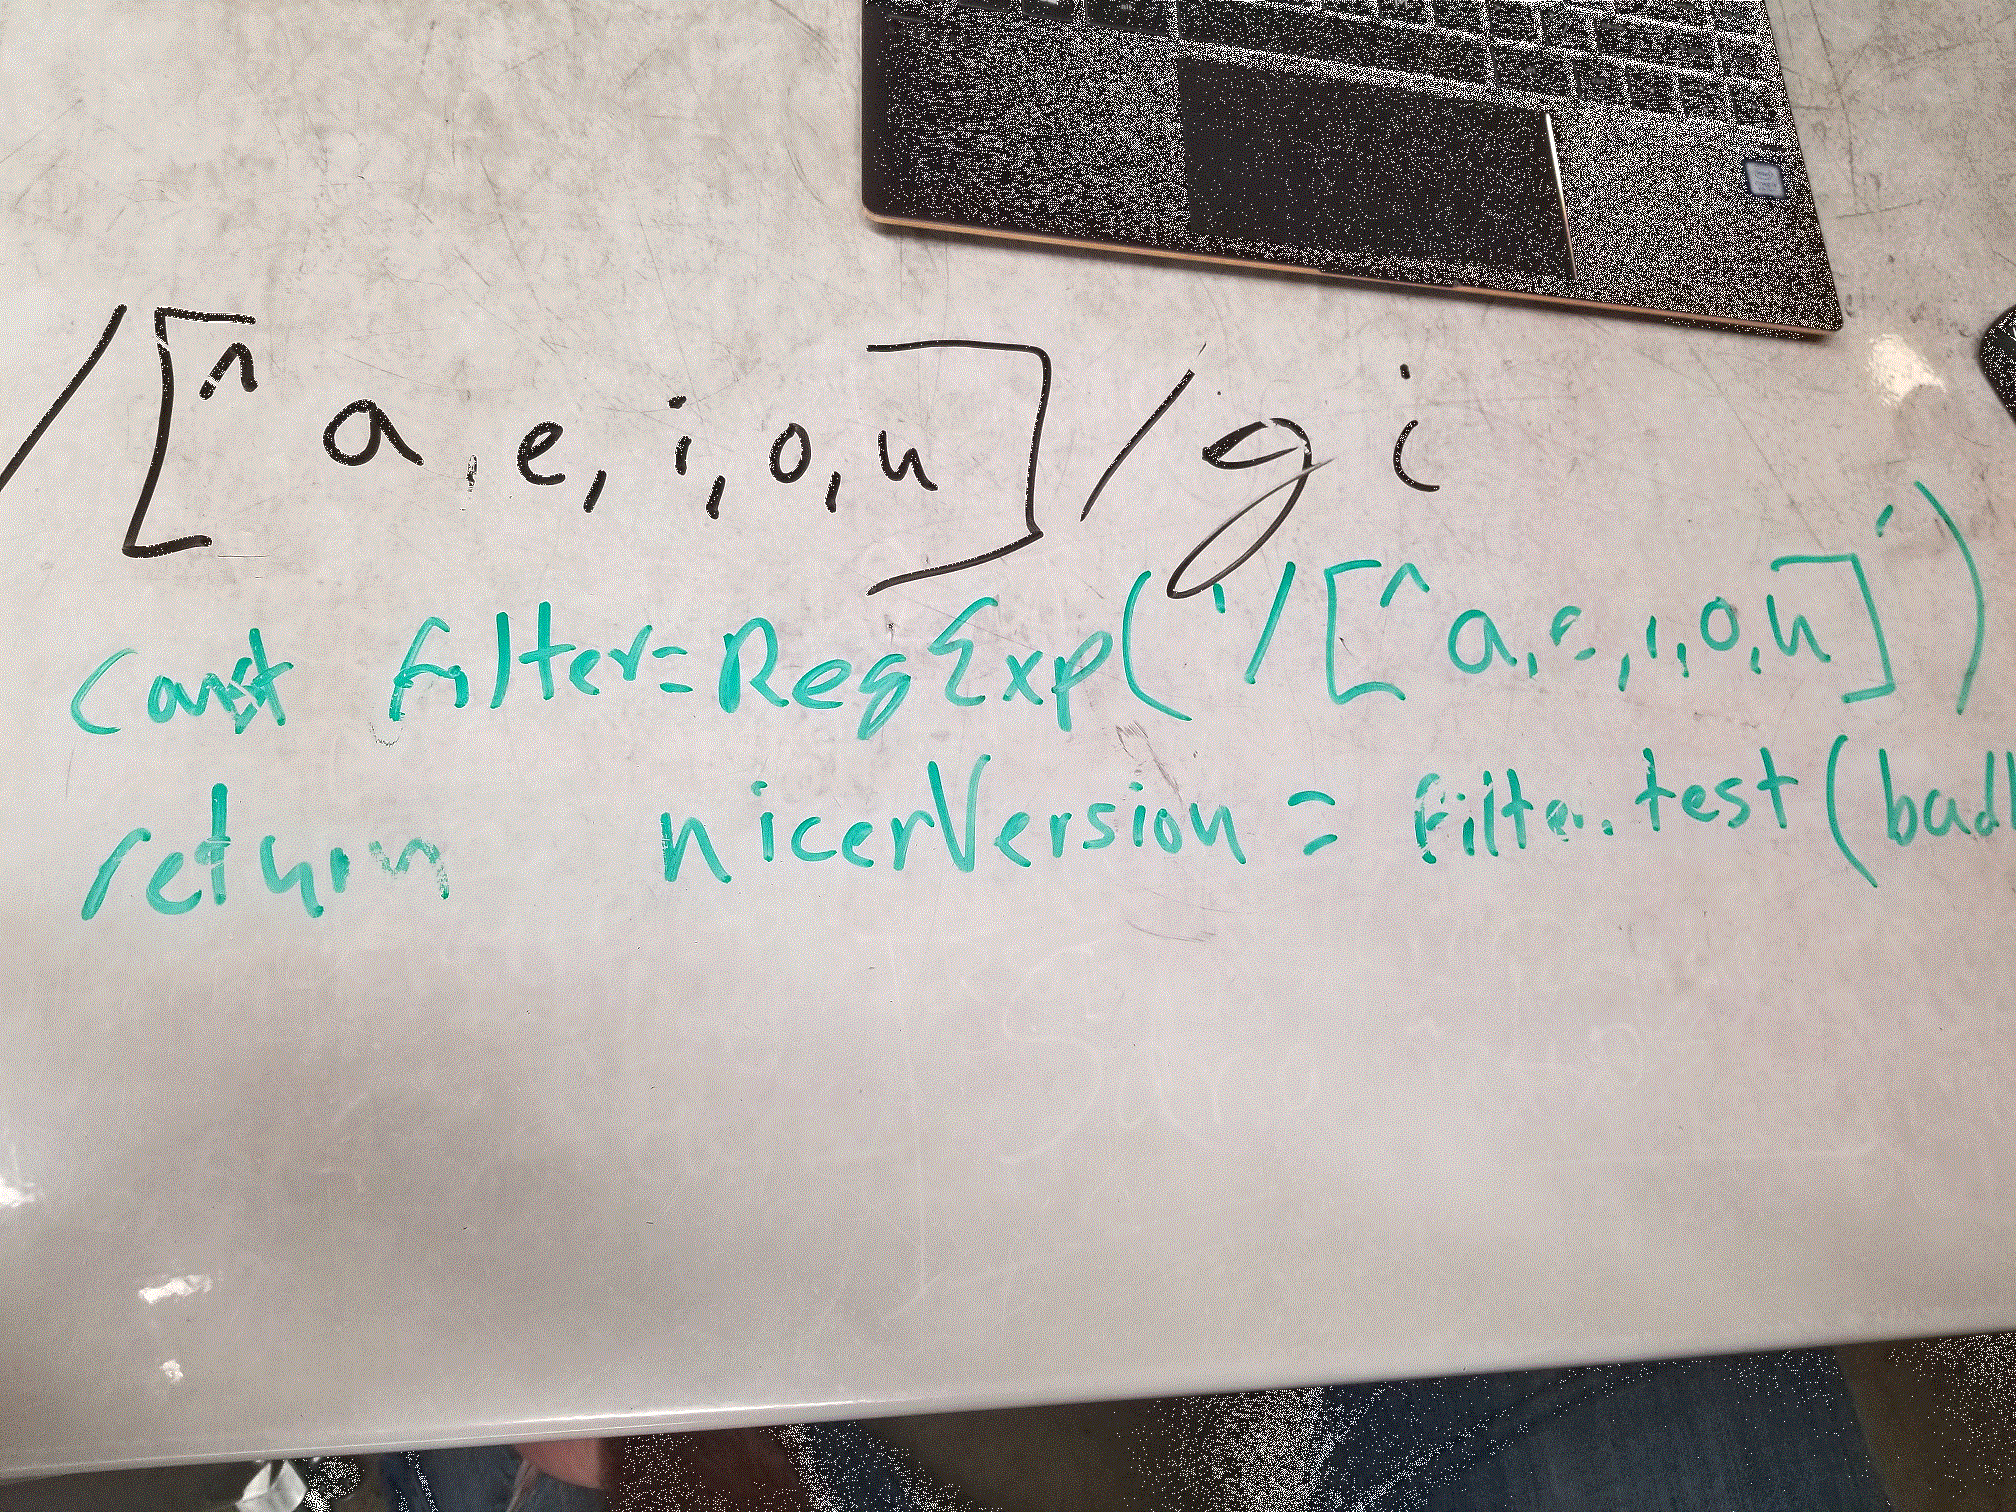 /[^a,e,i,o,u]/gi
const filter=RegExp('/[^a,e,i,o,u]')
return nicerVersion = filter.test(bad